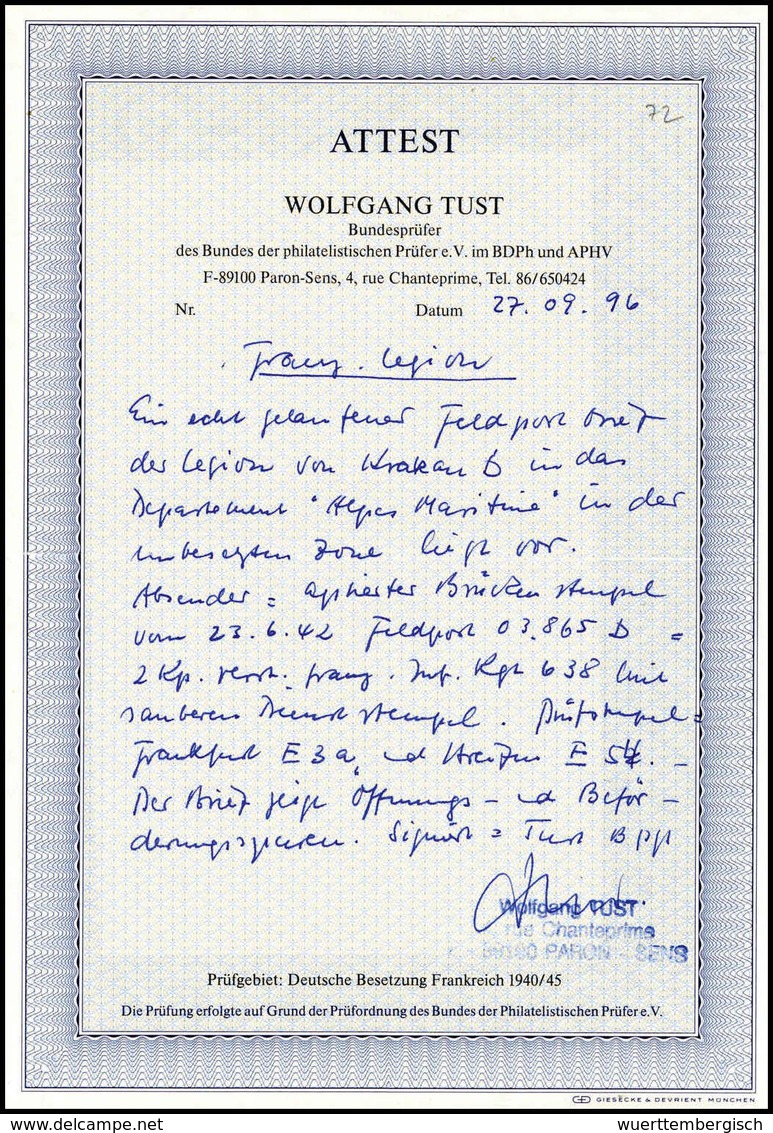 72
ATTEST
WOLFGANG TUST
Bundesprüfer
des Bundes der philatelistischen Prüfer e.V. im BDPh und APHV
F-89100 Paron-Sens, 4, rue Chanteprime, Tel. 86/650424
Nr. Datum 27.09.96
Franz. Legion
Ein echt gelaufener Feldpost Brief
der Legion von Krakau b in das
Departement "Alpes Maritime" in der
unbesetzten Zone liegt vor.
Absender = aptierter Brücken stempel
vom 23.6.42 Feldpost 03.865 D =
2 Kp. verst. franz. Inf. Rgt 638 mit
sauberem Dienst stempel. Prüfstempel =
Frankfurt E 3 a, und Streifen E 5 . -
Der Brief zeigt Öffnungs - und Beför -
derungsspuren. Signiert = Tust BPP
Wolfgang TUST
rue Chanteprime
89100 PARON - SENS
Prüfgebiet: Deutsche Besetzung Frankreich 1940/45
Die Prüfung erfolgte auf Grund der Prüfordnung des Bundes der Philatelistischen Prüfer e.V.
GD GIESECKE & DEVRIENT MÜNCHEN
www.wuerttembergisch